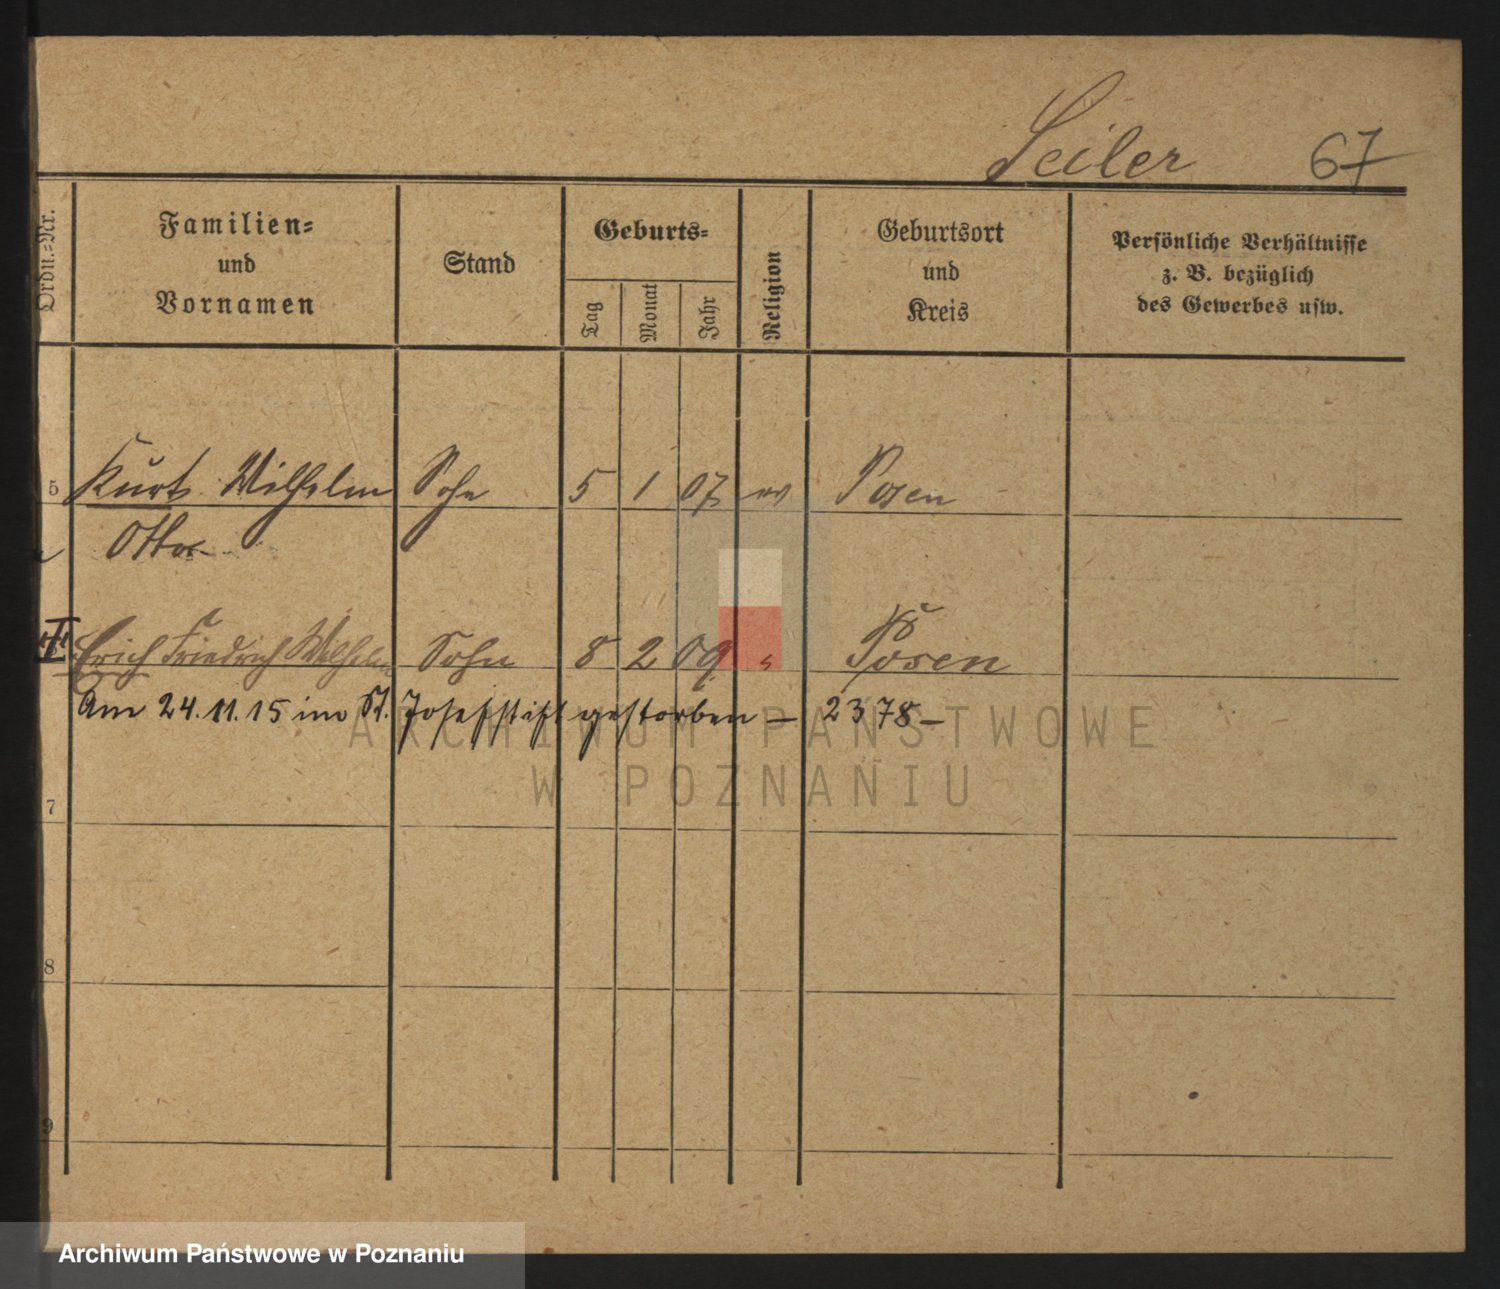 Seiler 67
Ordn.=Nr.
Familien=
und
Vornamen
Stand
Geburts=
Tag
Monat
Jahr
Religion
Geburtsort
und
Kreis
Persönliche Verhältnisse
z. B. bezüglich
des Gewerbes usw.
5 Kurt Wilhelm Sohn 5 1 07 ev Posen
Otto
Erich Friedrich Wilhelm Sohn 8 2 09 Posen
Am 24.11.15 im St. Josefstift gestorben — 2378 —
7
8
9
ARCHIWUM PAŃSTWOWE
W POZNANIU
Archiwum Państwowe w Poznaniu